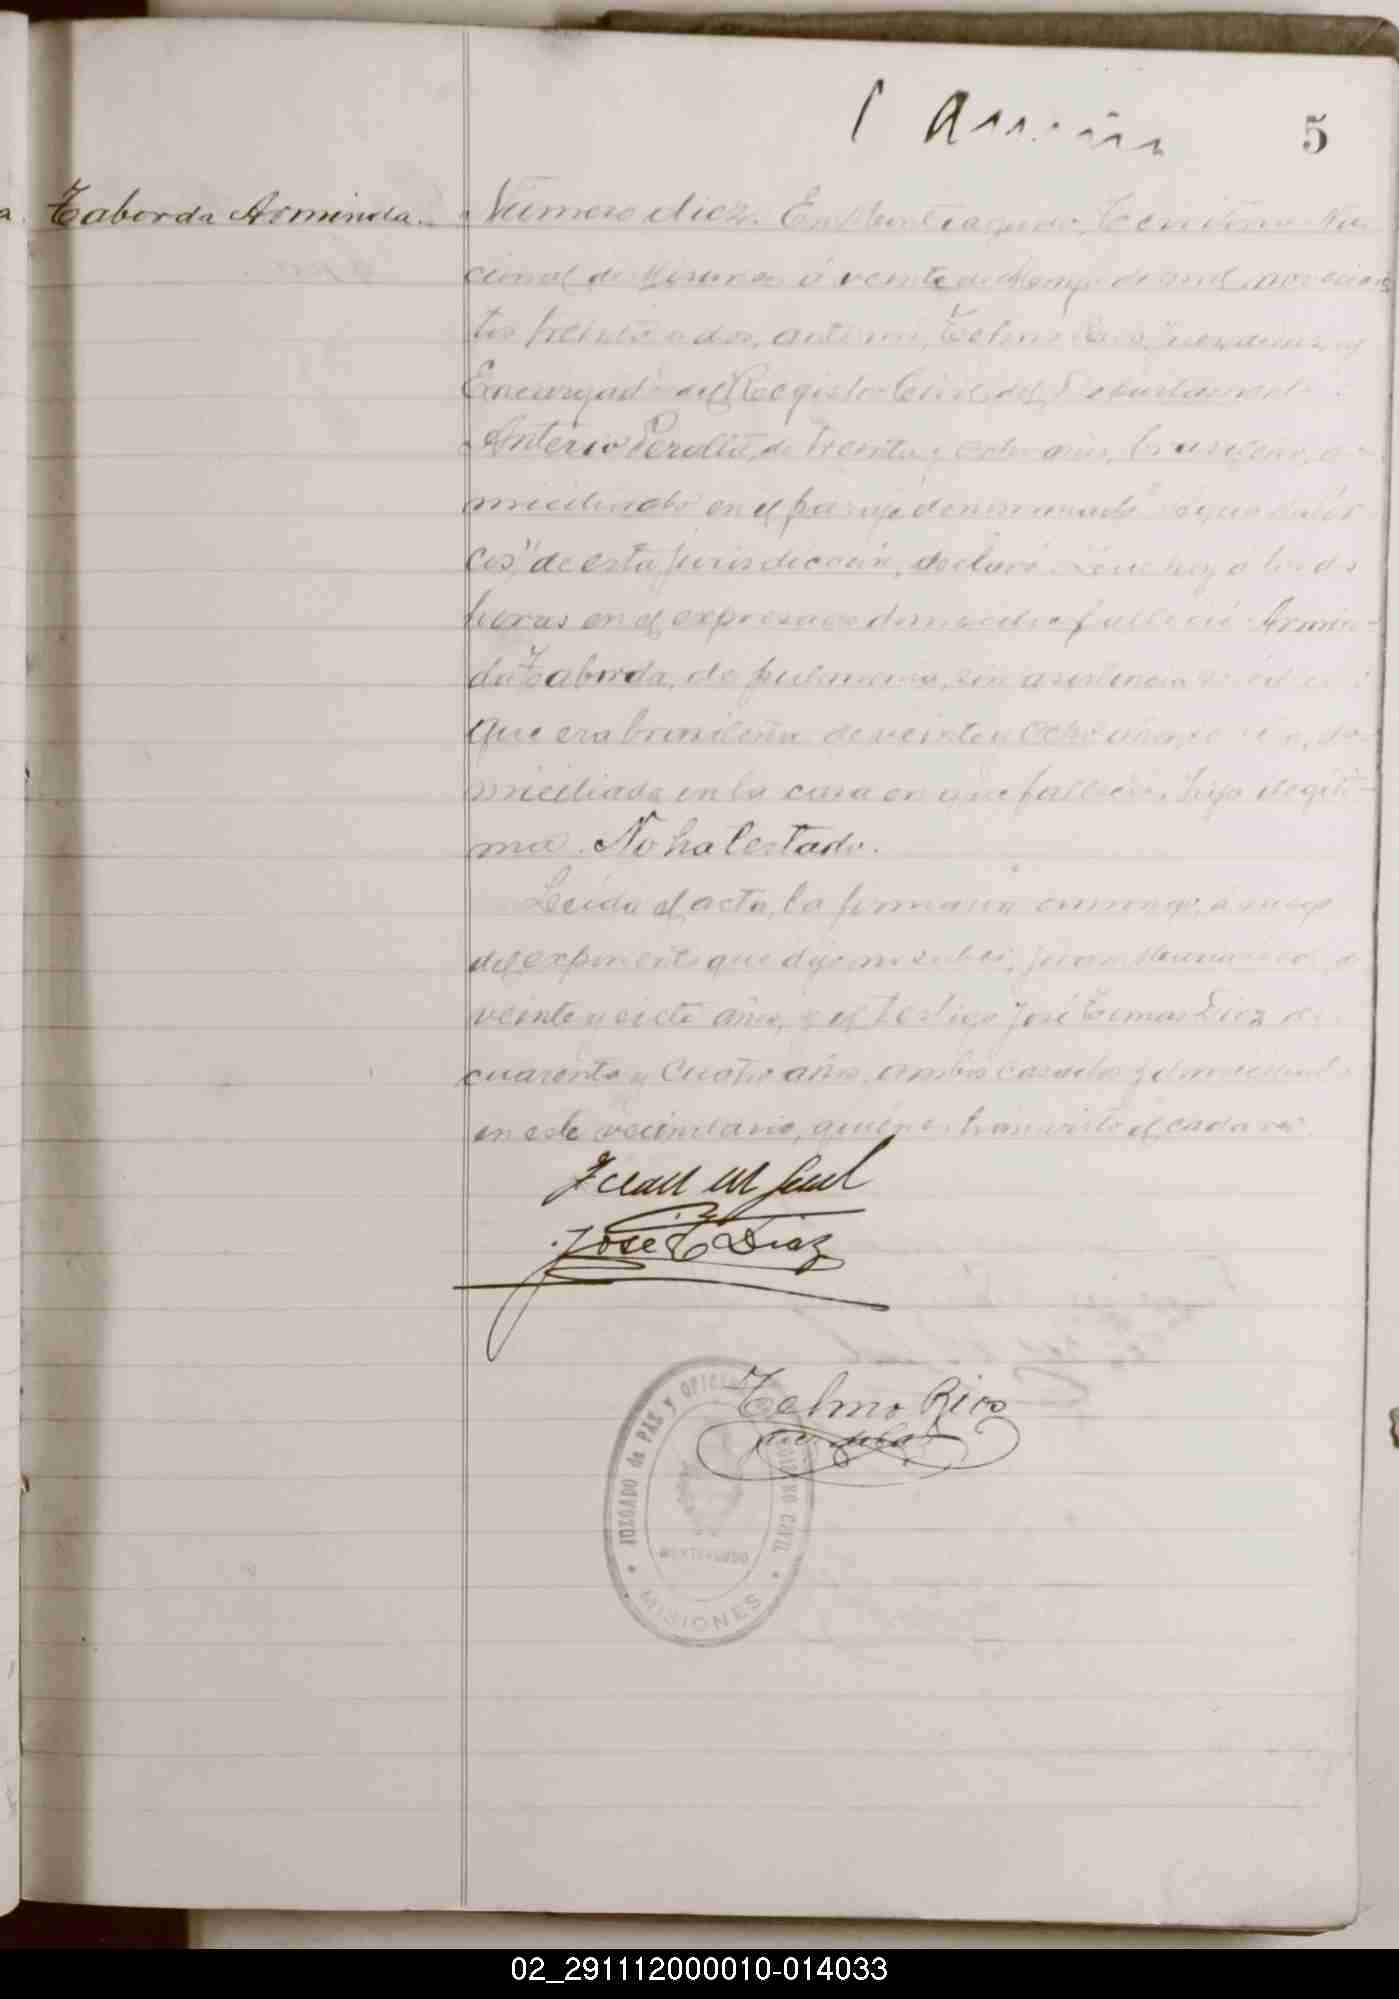 5
Taborda Arminda.
Número diez. En Monteagudo, Territorio Na-
cional de Misiones á veinte de Mayo de mil novecien-
tos treinta y dos, ante mi, Telmo Rios, Juez de Paz y
Encargado del Registro Civil del Departamento
Anterio Peralta, de treinta y ocho años, brasileño, do-
miciliado en el paraje denominado
ces" de esta jurisdiccion, declaró: Que hoy a las dos
horas en el expresado domicilio falleció Armin-
da Taborda, de pulmonia, sin asistencia médica;
que era brasileña de veinte y ocho años, do-
miciliada en la casa en que falleció, hija ilegiti-
ma. No ha testado.
Leida el acta, la firmaron conmigo, a ruego
del exponente que dijo no saber, Juan
veinte y siete años, y el testigo José Tomas Diaz de
cuarenta y cuatro años, ambos casados y domiciliados
en este vecindario, quienes han visto el cadaver.
Juan
José T Diaz
Telmo Rios
JUZGADO de PAZ y OFICINA REGISTRO CIVIL
MONTEAGUDO
MISIONES
02_291112000010-014033